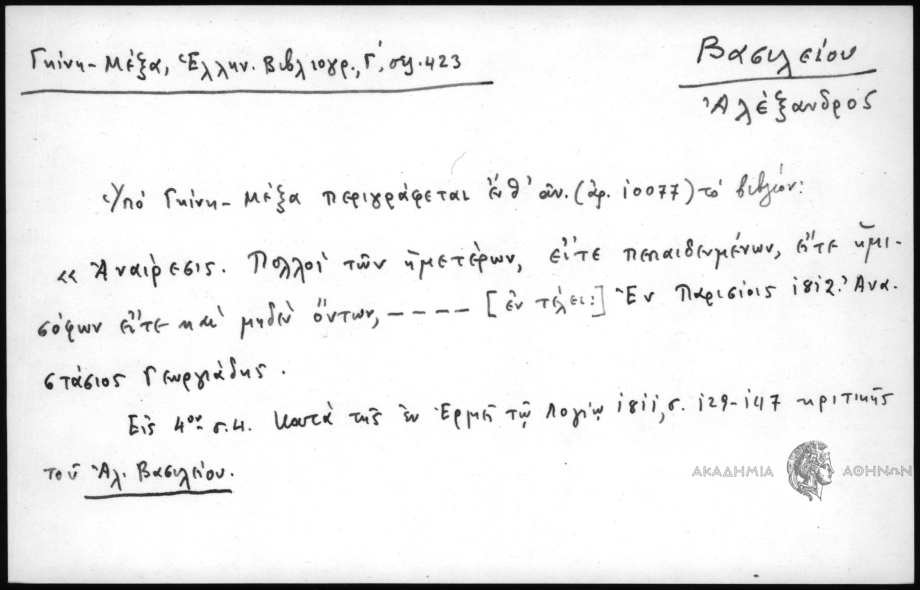 Γκίνη - Μέξα, Ἑλλην. Βιβλιογρ., Γ', σελ. 423
Βασιλείου
Ἀλέξανδρος
Ὑπό Γκίνη - Μέξα περιγράφεται ὑπ' ἀρ. (ἀρ. 10077) τό βιβλίον:
« Ἀναίρεσις. Πολλοί τῶν ἡμετέρων, εἴτε πεπαιδευμένων, εἴτε ἡμι-
σόφων εἴτε καί μηδέν ὄντων, ---- [ἐν τέλει:] Ἐν Παρισίοις 1812. Ἀνα-
στάσιος Γεωργιάδης.
Εἰς 4ον σ. 4. Κατά τῆς ἐν Ἑρμῇ τῷ Λογίῳ 1811, σ. 129-147 κριτικῆς
τοῦ Ἀλ. Βασιλείου.
ΑΚΑΔΗΜΙΑ ΑΘΗΝΩΝ